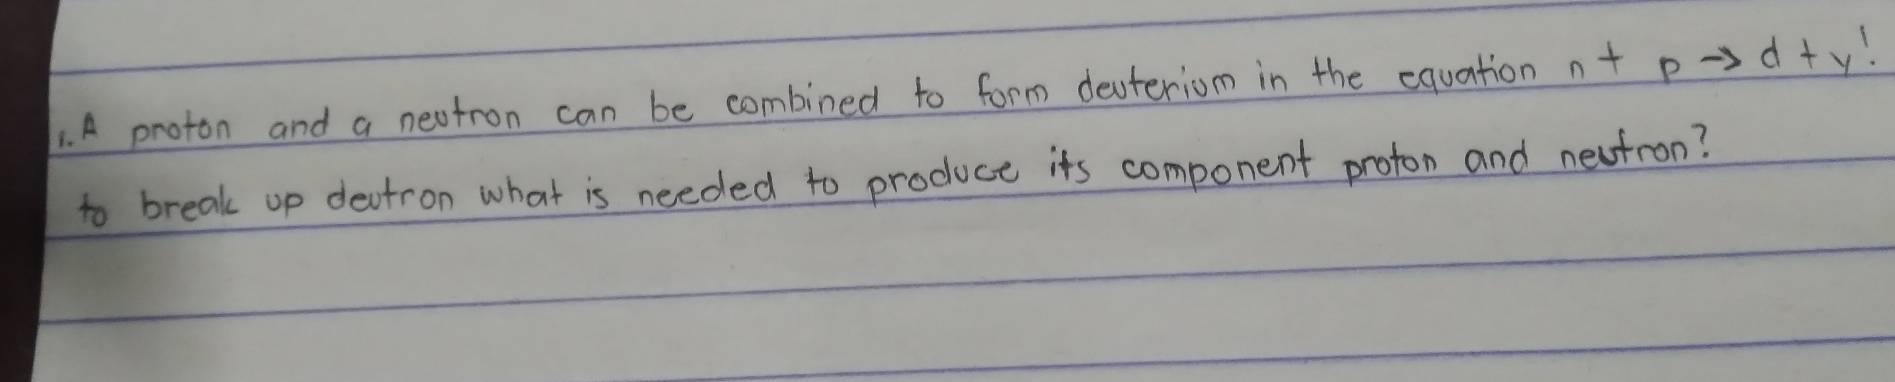 1. A proton and a neutron can be combined to form deuterium in the equation n + p → d + γ!
to break up deutron what is needed to produce its component proton and neutron?